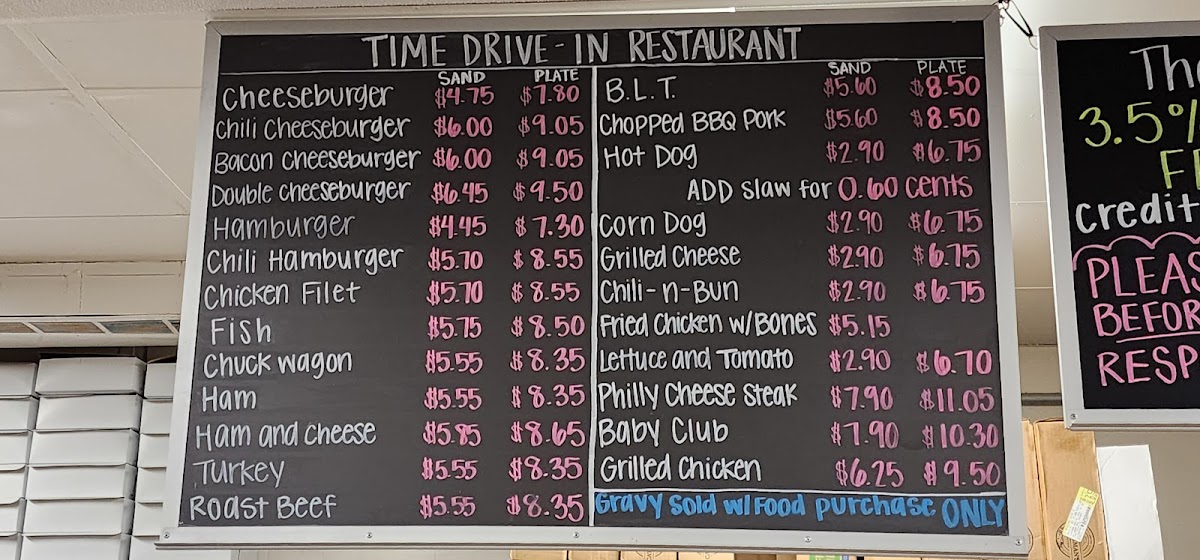 TIME DRIVE-IN RESTAURANT
SAND PLATE
Cheeseburger $4.75 $7.80
Chili Cheeseburger $6.00 $9.05
Bacon Cheeseburger $6.00 $9.05
Double cheeseburger $6.45 $9.50
Hamburger $4.45 $7.30
Chili Hamburger $5.70 $8.55
Chicken Filet $5.70 $8.55
Fish $5.75 $8.50
Chuck wagon $5.55 $8.35
Ham $5.55 $8.35
Ham and Cheese $5.85 $8.65
Turkey $5.55 $8.35
Roast Beef $5.55 $8.35
SAND PLATE
B.L.T. $5.60 $8.50
Chopped BBQ Pork $5.60 $8.50
Hot Dog $2.90 $6.75
ADD slaw for 0.60 cents
Corn Dog $2.90 $6.75
Grilled Cheese $2.90 $6.75
Chili-n-Bun $2.90 $6.75
Fried Chicken w/Bones $5.15
Lettuce and Tomato $2.90 $6.70
Philly Cheese Steak $7.90 $11.05
Baby Club $7.90 $10.30
Grilled Chicken $6.25 $9.50
Gravy Sold w/Food purchase ONLY
3.5%
credit